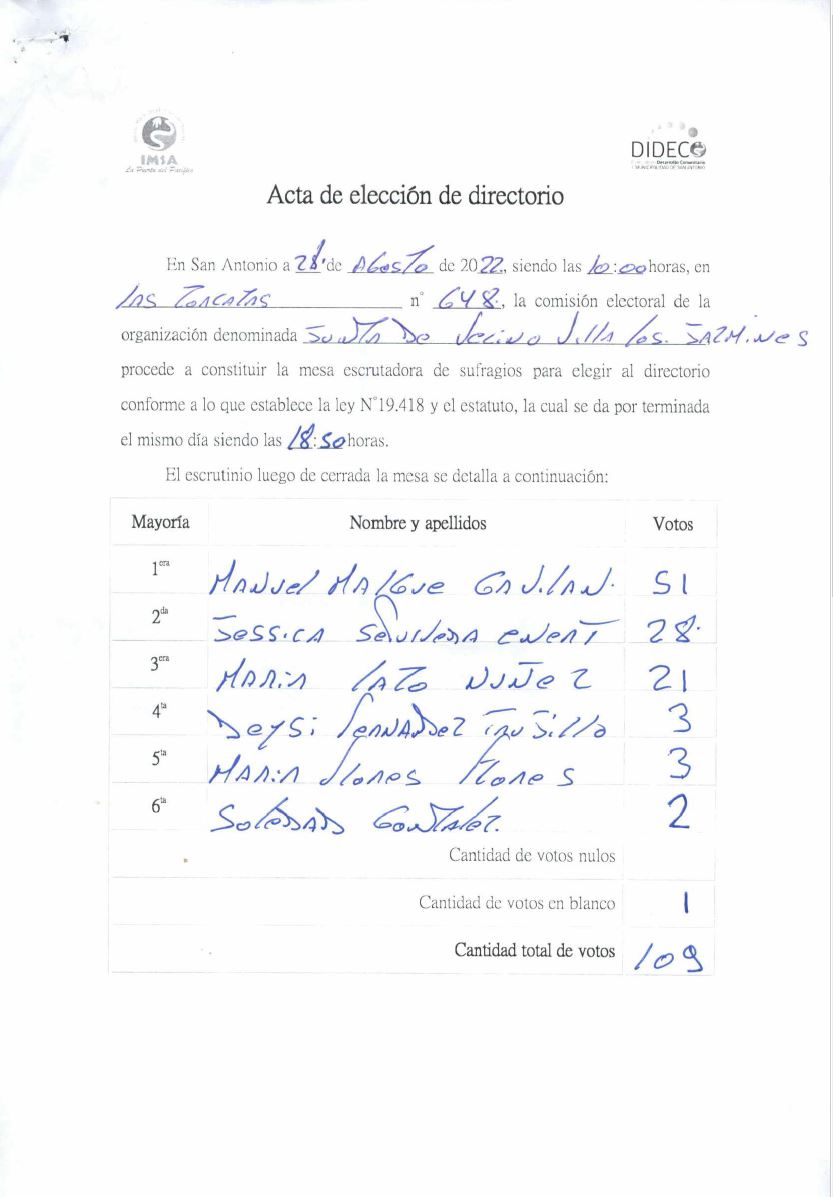 IMSA
La Puerta del Pacífico
DIDECO
Desarrollo Comunitario
I. MUNICIPALIDAD DE SAN ANTONIO
Acta de elección de directorio
En San Antonio a 28 de Agosto de 2022, siendo las 10:00 horas, en
Las Torcazas n° 648, la comisión electoral de la
organización denominada Junta De Vecino Villa Los Jazmines
procede a constituir la mesa escrutadora de sufragios para elegir al directorio
conforme a lo que establece la ley N°19.418 y el estatuto, la cual se da por terminada
el mismo día siendo las 18:50 horas.
El escrutinio luego de cerrada la mesa se detalla a continuación:
Mayoría Nombre y apellidos Votos
1era Manuel Malgue Gavilan. 51
2da Jessica 28.
3era Maria Lazo Nuñez 21
4ta Deysi 3
5ta Maria Flores Flores 3
6ta Soledad Gonzalez. 2
Cantidad de votos nulos
Cantidad de votos en blanco 1
Cantidad total de votos 109